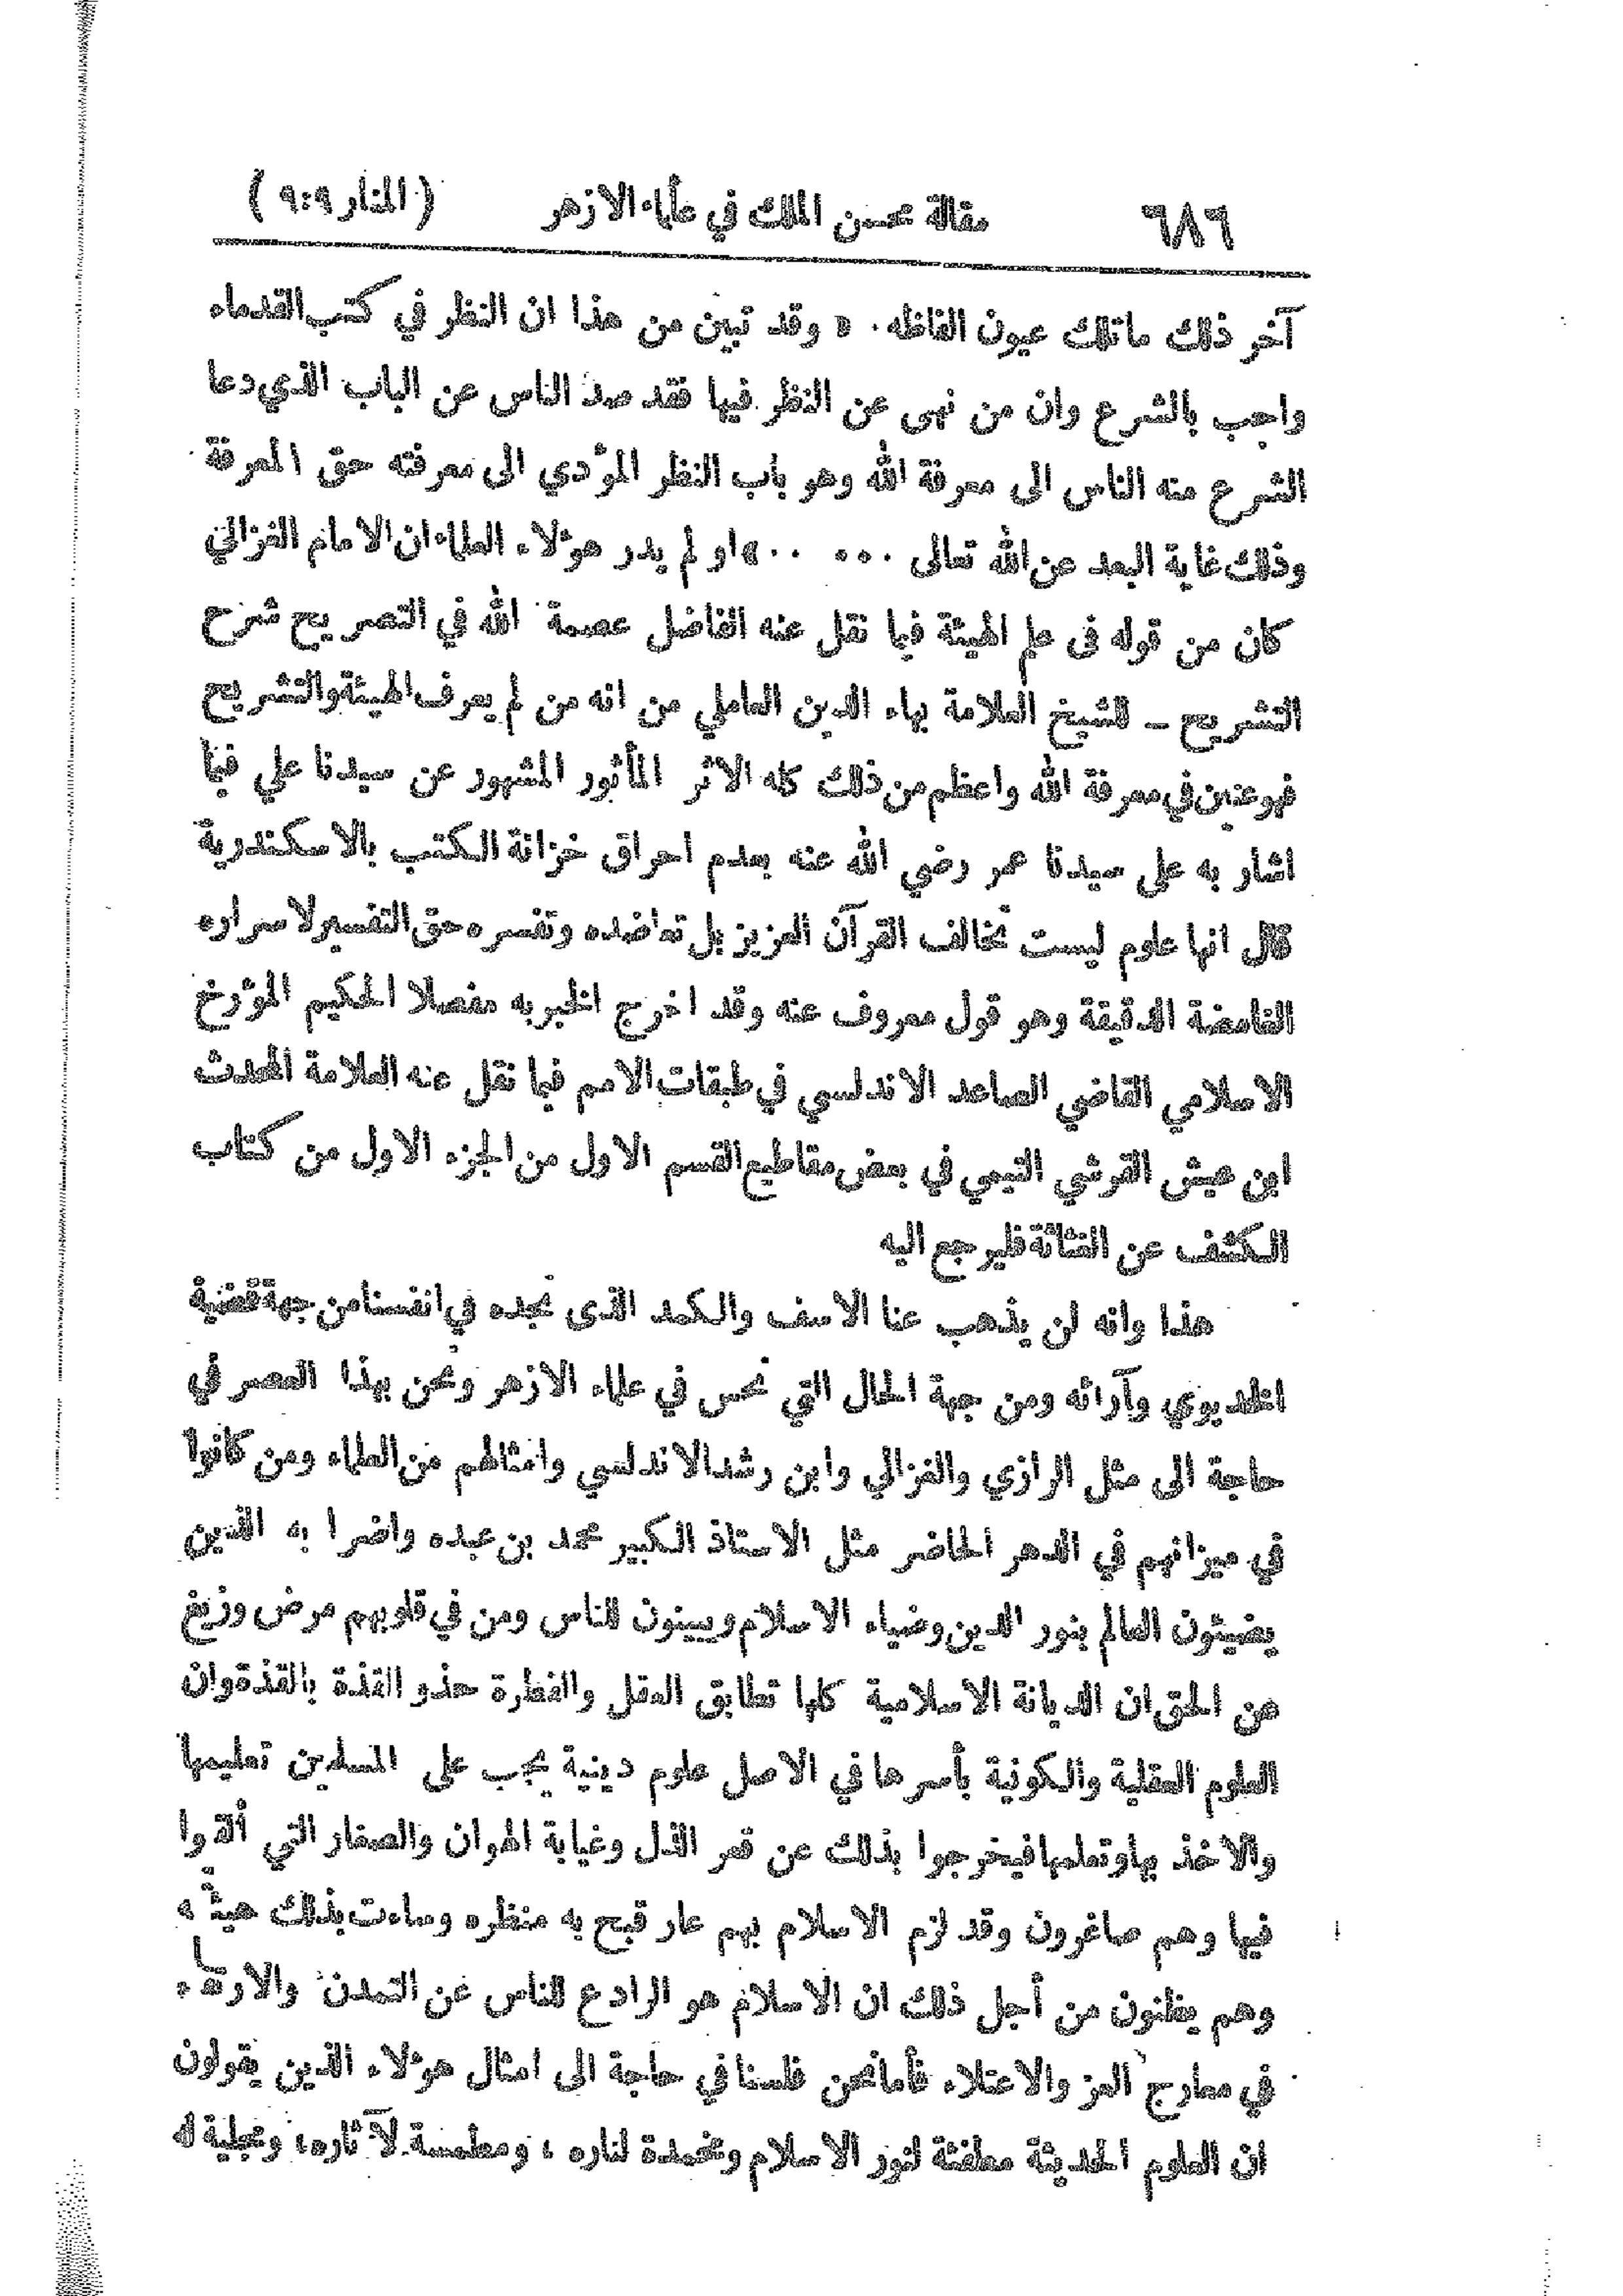 ٦٨٦ مقالة محسن الملك في علماء الازهر ( المنار ٩:٩ )
آخر ذلك ماتلك عيون الفاظه. « وقد تبين من هذا ان النظر في كتب القدماء
واجب بالشرع وان من نهى عن النظر فيها فقد صد الناس عن الباب الذي دعا
الشرع منه الناس الى معرفة الله وهو باب النظر المؤدي الى معرفته حق المعرفة
وذلك غاية البعد عن الله تعالى ... ..» او لم يدر هؤلاء العلماء ان الامام الغزالي
كان من قوله فى علم الهيئة فيما نقل عنه الفاضل عصمة الله في التصريح شرح
التشريح ــ للشيخ العلامة بهاء الدين العاملي من انه من لم يعرف الهيئة والتشريح
فهو عنين في معرفة الله واعظم من ذلك كله الاثر المأثور المشهور عن سيدنا علي فيما
اشار به على سيدنا عمر رضي الله عنه بعدم احراق خزانة الكتب بالاسكندرية
قال انها علوم ليست تخالف القرآن العزيز بل تعاضده وتفسره حق التفسير لاسراره
الغامضة الدقيقة وهو قول معروف عنه وقد اخرج الخبر به مفصلا الحكيم المؤرخ
الاسلامي القاضي الصاعد الاندلسي في طبقات الامم فيما نقل عنه العلامة المحدث
ابن عيش القرشي التيمي في بعض مقاطيع القسم الاول من الجزء الاول من كتاب
الكشف عن الغثاثة فليرجع اليه
هذا وانه لن يذهب عنا الاسف والكمد الذى نجده في انفسنا من جهة قضية
الخديوي وآرائه ومن جهة الحال التي نحس في علماء الازهر ونحن بهذا العصر في
حاجة الى مثل الرازي والغزالي وابن رشد الاندلسي وامثالهم من العلماء ومن كانوا
في ميزانهم في الدهر الحاضر مثل الاستاذ الكبير محمد بن عبده واضرا به الذين
يضيئون العالم بنور الدين وضياء الاسلام ويبينون للناس ومن في قلوبهم مرض وزيغ
عن الحق ان الديانة الاسلامية كلها تطابق العقل والفطرة حذو القذة بالقذة وان
العلوم العقلية والكونية بأسرها في الاصل علوم دينية يجب على المسلمين تعليمها
والاخذ بها وتعلمها فيخرجوا بذلك عن قعر الذل وغيابة الهوان والصغار التي ألقوا
فيها وهم صاغرون وقد لزم الاسلام بهم عار قبح به منظره وساءت بذلك هيئته
وهم يظنون من أجل ذلك ان الاسلام هو الرادع للناس عن التمدن والارتقاء
في معارج العز والاعتلاء فأما نحن فلسنا في حاجة الى امثال هؤلاء الذين يقولون
ان العلوم الحديثة مطفئة لنور الاسلام ومخمدة لناره ، ومطمسة لآثاره، ومجلية له